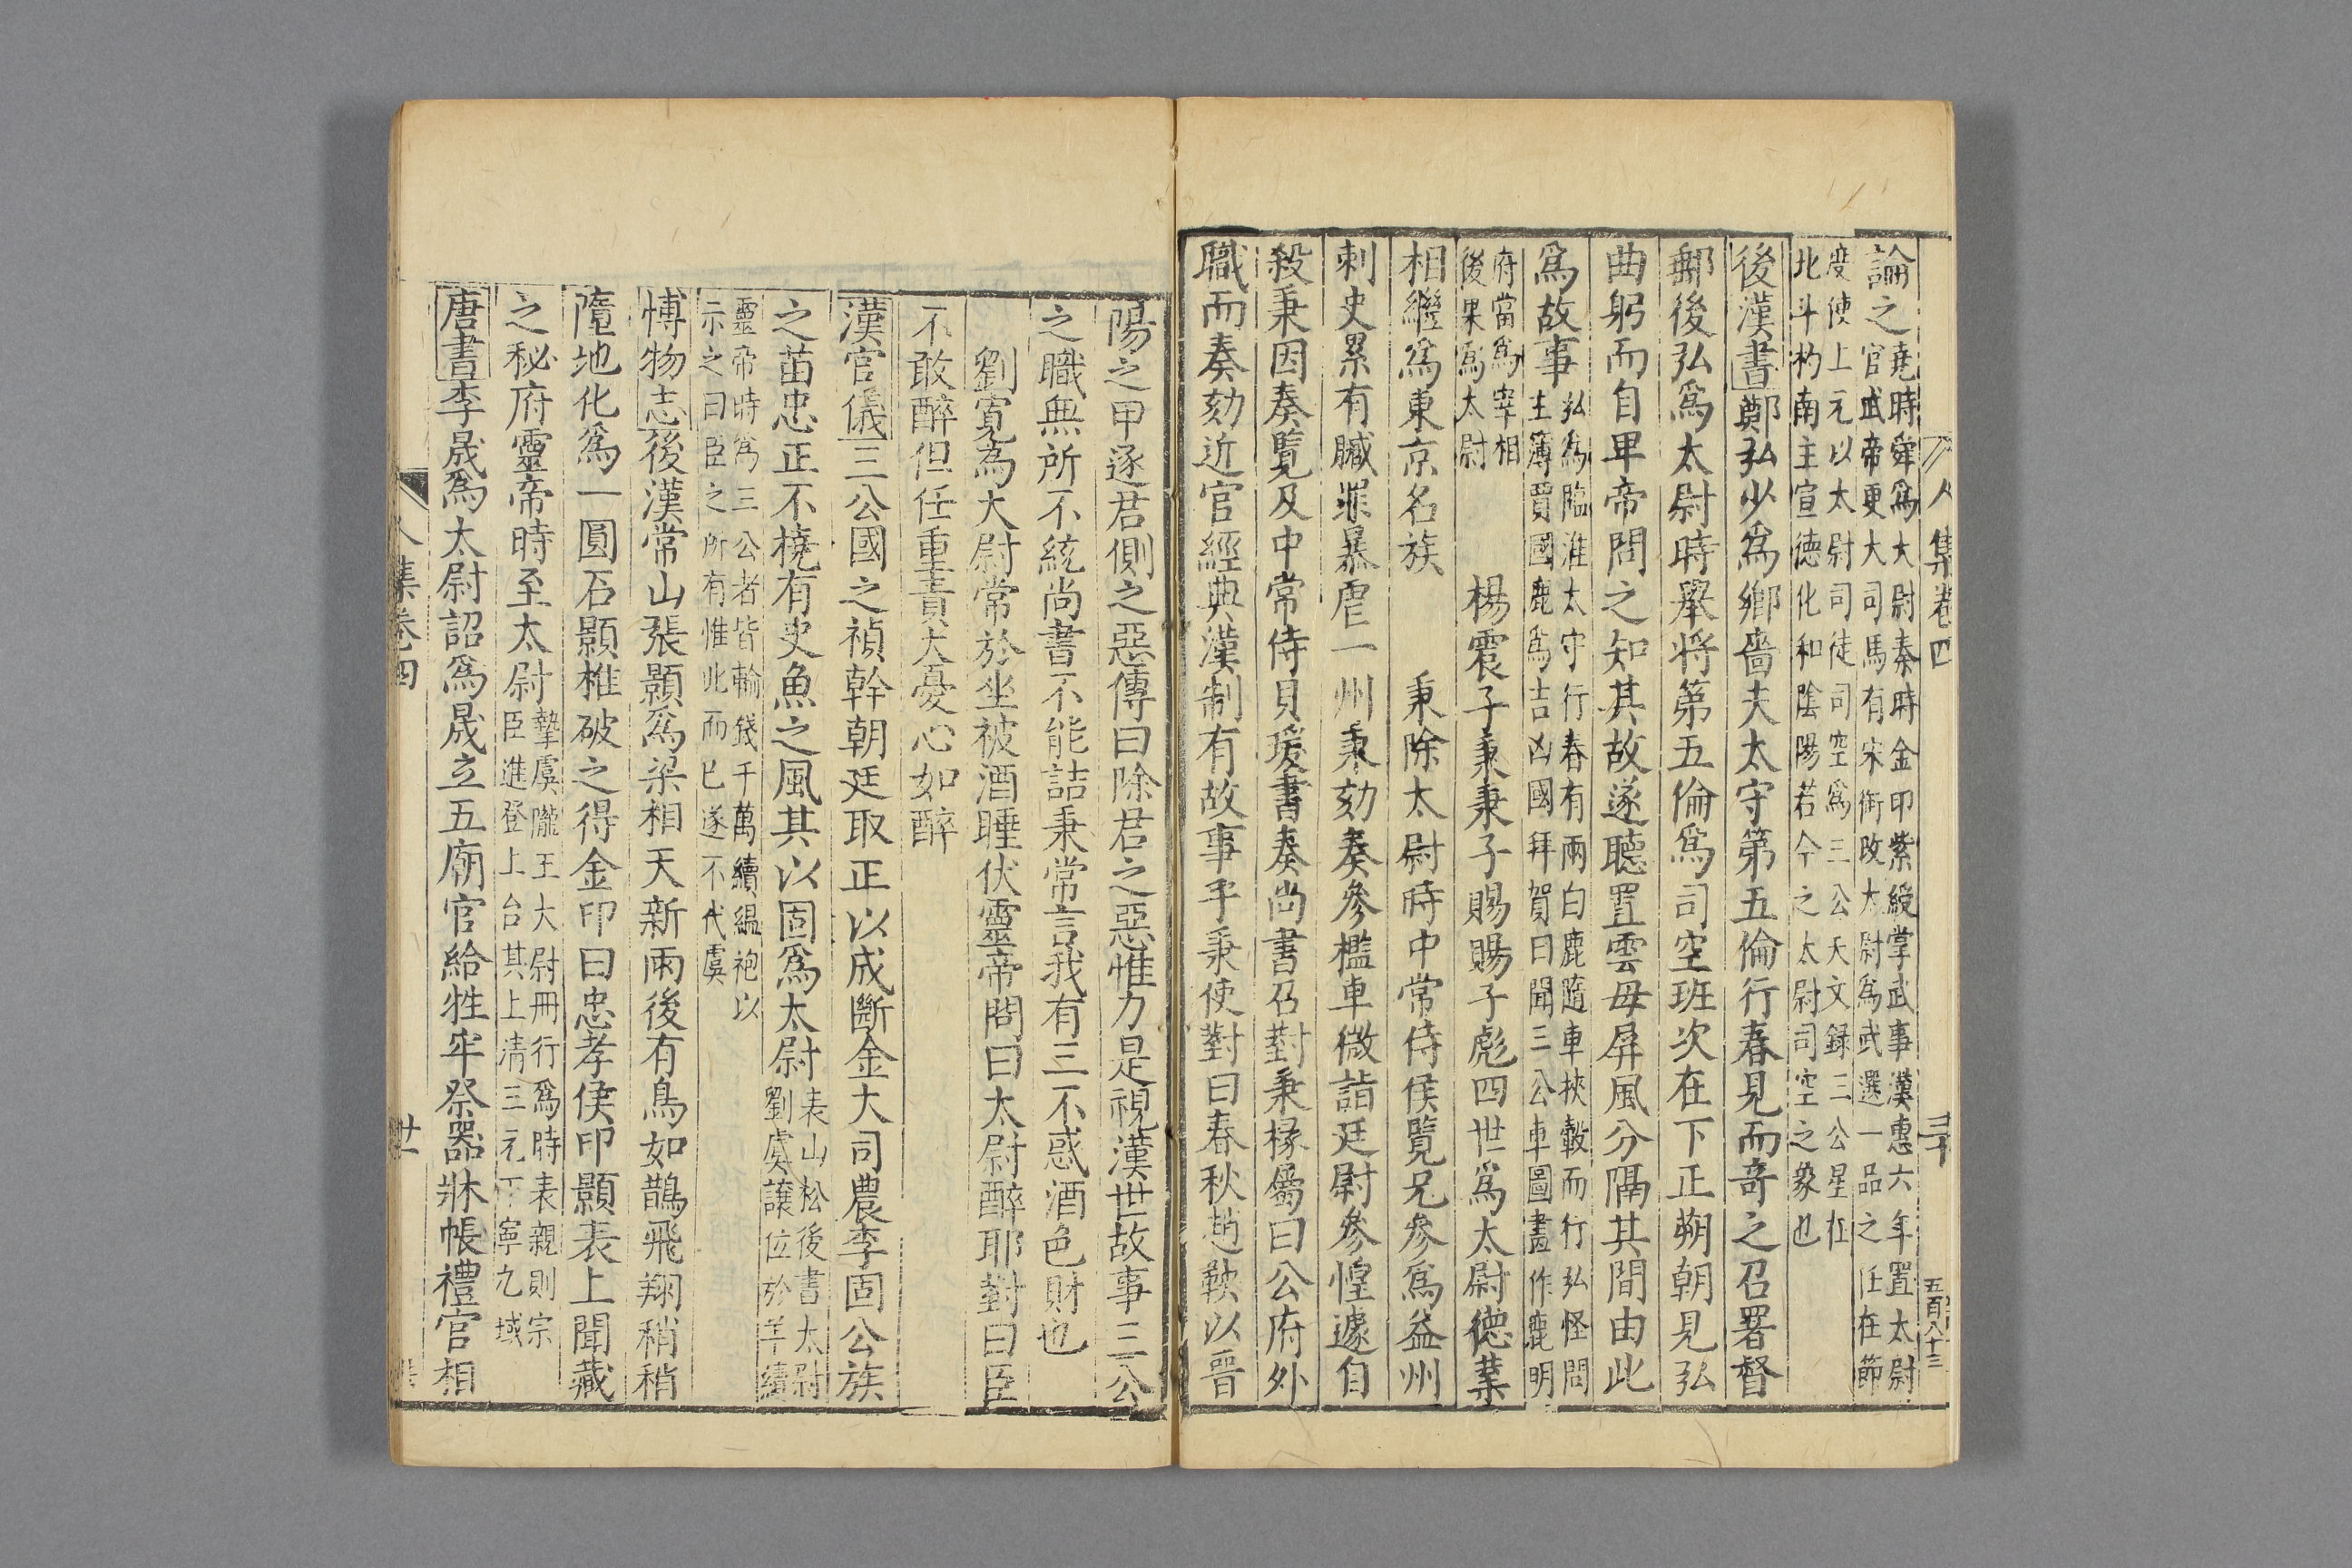 人集卷四 三十 五百八十三
論之堯時舜爲太尉秦時金印紫綬掌武事漢惠六年置太尉
官武帝更大司馬有宋衛改大尉爲武選一品之任在節
度使上元以太尉司徒司空爲三公天文録三公星在
北斗杓南主宣徳化和陰陽若今之太尉司空之象也
後漢書鄭弘少爲鄉嗇夫太守第五倫行春見而奇之召署督
郵後弘爲太尉時舉将第五倫爲司空班次在下正朔朝見弘
曲躬而自卑帝問之知其故遂聽置雲母屏風分隔其間由此
爲故事弘爲臨淮太守行春有兩白鹿隨車挾轂而行弘怪問
主簿賈國鹿爲吉凶國拜賀曰聞三公車圖畫作鹿明
府當爲宰相
後果爲太尉
楊震子秉秉子賜賜子彪四世爲太尉德業
相繼爲東京名族
秉除太尉時中常侍侯覽兄參爲益州
刺史累有贓罪暴虐一州秉劾奏參檻車徵詣廷尉參惶遽自
殺秉因奏覽及中常侍貝瑗書奏尚書召對秉掾屬曰公府外
職而奏劾近官經典漢制有故事乎秉使對曰春秋趙鞅以晉
陽之甲逐君側之惡傳曰除君之惡惟力是視漢世故事三公
之職無所不統尚書不能詰秉常言我有三不惑酒色財也
劉寬為大尉常於坐被酒睡伏靈帝問曰太尉醉耶對曰臣
不敢醉但任重責大憂心如醉
漢官儀三公國之禎幹朝廷取正以成斷金大司農李固公族
之苗忠正不橈有史魚之風其以固爲太尉表山松後書太尉
劉虞讓位於羊續
靈帝時爲三公者皆輸錢千萬續緼袍以
示之曰臣之所有惟此而已遂不代虞
博物志後漢常山張顥爲梁相天新雨後有鳥如鵲飛翔稍稍
墮地化爲一圓石顥椎破之得金印曰忠孝侯印顥表上聞藏
之秘府靈帝時至太尉摯虞隴王大尉冊行爲時表親則宗
臣進登上台其上清三元下寧九域
唐書李晟爲太尉詔爲晟立五廟官給牲牢祭器牀帳禮官相
人集卷四 廿一